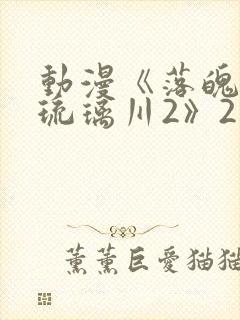 動漫《落魄
琉璃川2》2
薰薰巨愛猫猫